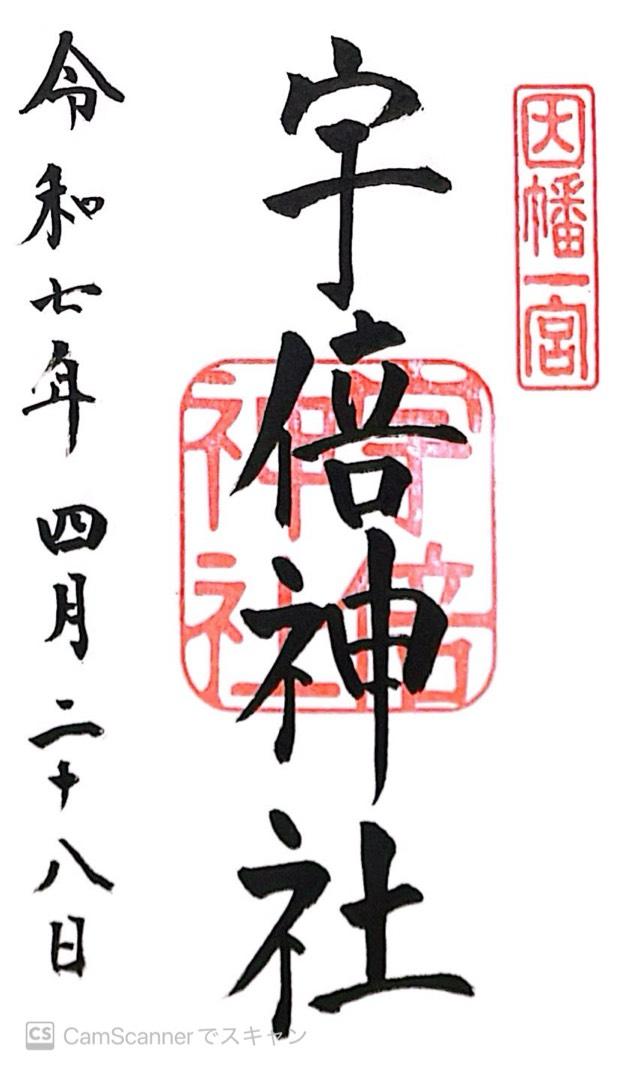 因幡一宮
宇倍神社
宇倍
神社
令和七年 四月二十八日
CS CamScannerでスキャン